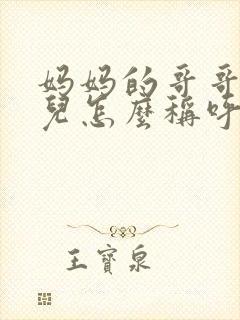 妈妈的哥哥
兒怎麼稱呼
王寶泉